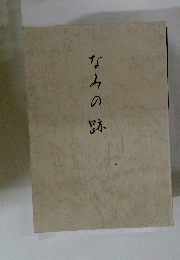 なみの跡